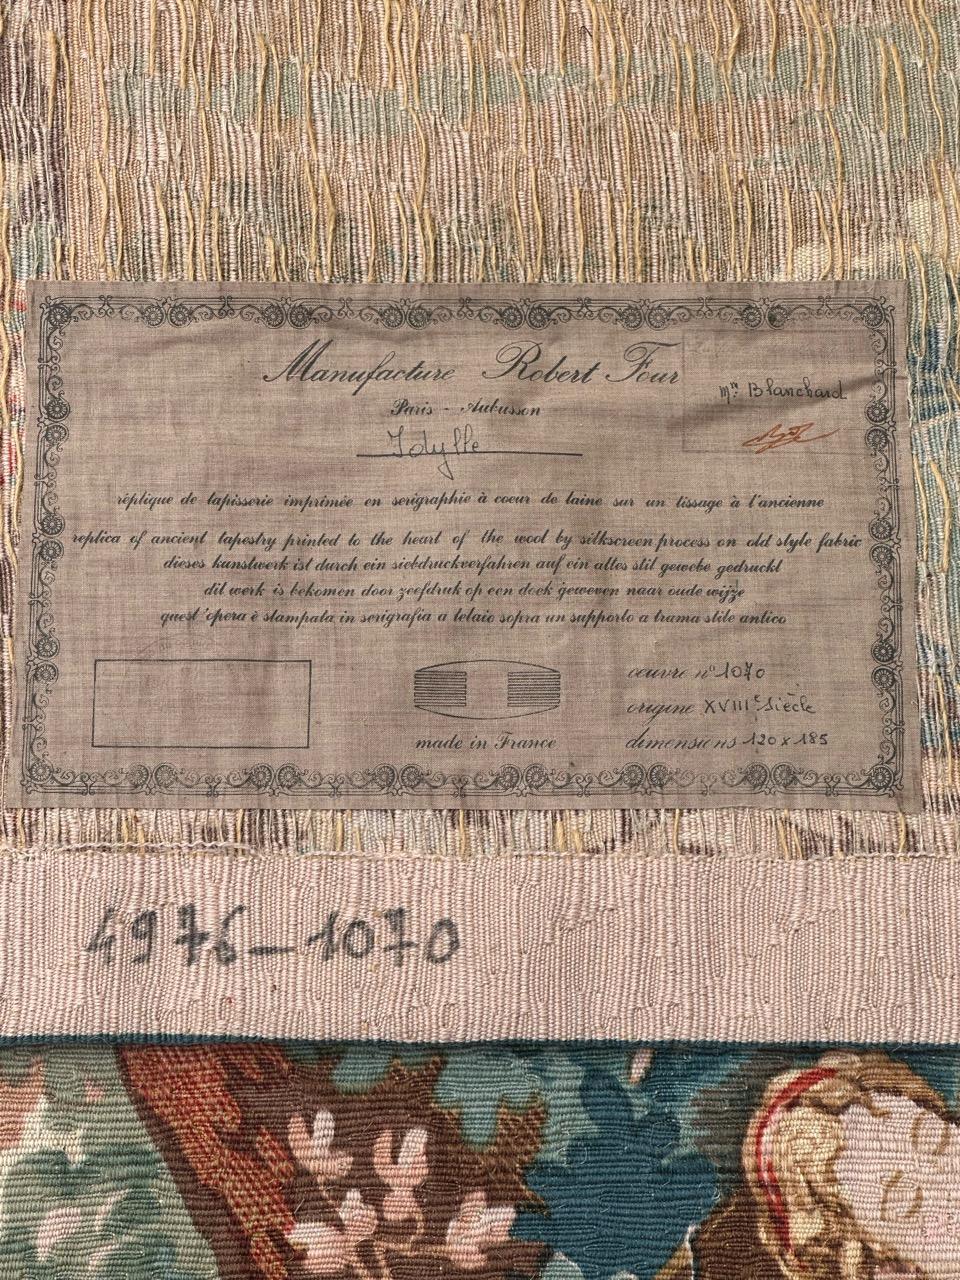 Manufacture Robert Four
Mr. Blanchard
Paris - Aubusson
Idylle
réplique de tapisserie imprimée en serigraphie à coeur de laine sur un tissage à l'ancienne
replica of ancient tapestry printed to the heart of the wool by silkscreen process on old style fabric
dieses kunstwerk ist durch ein siebdruckverfahren auf ein altes stil gewebe gedruckt
dit werk is bekomen door zeefdruk op een doek geweven naar oude wijze
quest'opera è stampata in serigrafia a telaio sopra un supporto a trama stile antico
œuvre n° 1070
origine XVIIIe Siècle
made in France
dimensions 120 x 185
4976-1070